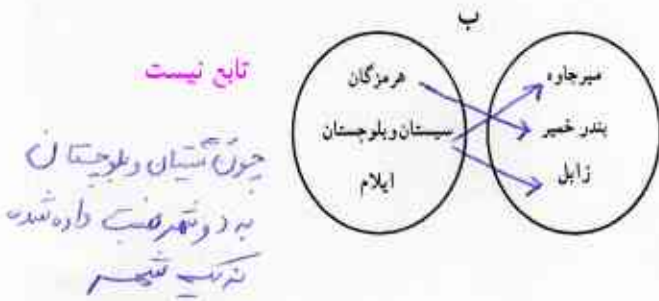 ب
تابع نیست
هرمزگان
سیستان و بلوچستان
ایلام
میرجاوه
بندر خمیر
زابل
چون سیستان و بلوچستان
به دو شهر نسبت داده شده
نه یک شهر